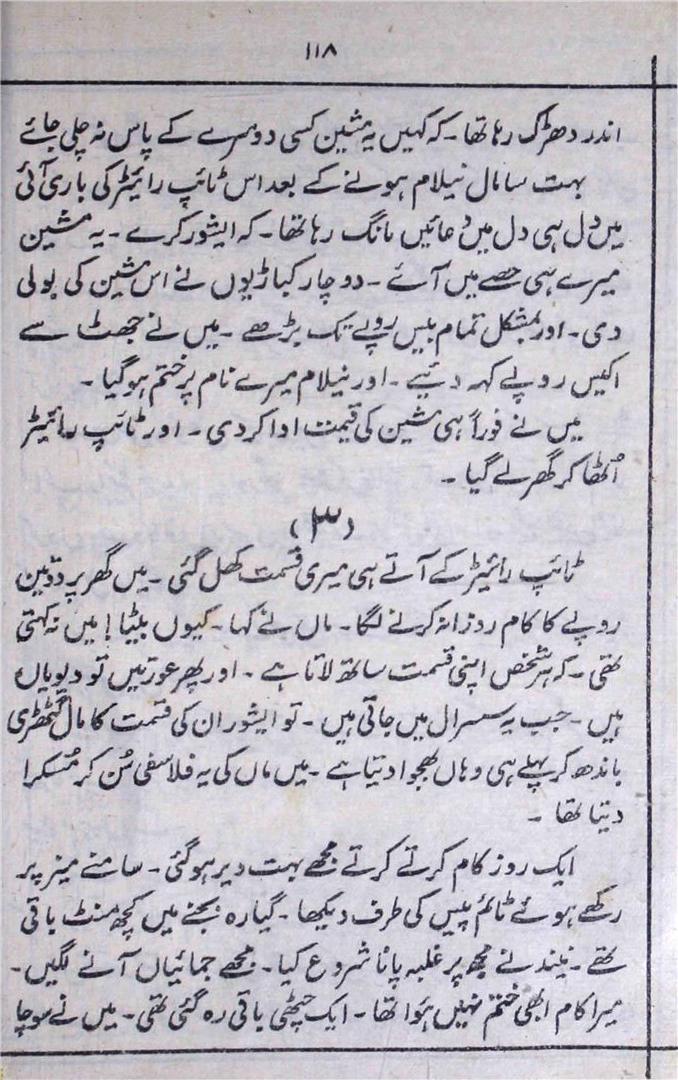 ۱۱۸
اندر دھڑک رہا تھا ۔ کہ کہیں یہ مشین کسی دوسرے کے پاس نہ چلی جائے
بہت سا مال نیلام ہونے کے بعد اس ٹائپ رائیٹر کی باری آئی
میں دل ہی دل میں دُعائیں مانگ رہا تھا ۔ کہ ایشور کرے ۔ یہ مشین
میرے ہی حصے میں آئے ۔ دو چار کباڑیوں نے اس مشین کی بولی
دی ۔ اور بمشکل تمام بیس روپے تک بڑھے ۔ میں نے جھٹ سے
اکیس روپے کہہ دئیے ۔ اور نیلام میرے نام پر ختم ہو گیا ۔
میں نے فوراً ہی مشین کی قیمت ادا کر دی ۔ اور ٹائپ رائیٹر
اُٹھا کر گھر لے گیا ۔
(۳)
ٹائپ رائیٹر کے آتے ہی میری قسمت کھل گئی ۔ میں گھر پر دو تین
روپے کا کام روزانہ کرنے لگا ۔ ماں نے کہا ۔ کیوں بیٹا ! میں نہ کہتی
تھی ۔ کہ ہر شخص اپنی قسمت ساتھ لاتا ہے ۔ اور پھر عورتیں تو دیویاں
ہیں ۔ جب یہ سسرال میں جاتی ہیں ۔ تو ایشور ان کی قسمت کا مال گٹھڑی
باندھ کر پہلے ہی وہاں بھجوا دیتا ہے ۔ میں ماں کی یہ فلاسفی سُن کر مُسکرا
دیتا تھا ۔
ایک روز کام کرتے کرتے مجھے بہت دیر ہو گئی ۔ سامنے میز پر
رکھے ہوئے ٹائم پیس کی طرف دیکھا ۔ گیارہ بجنے میں کچھ منٹ باقی
تھے ۔ نیند نے مجھ پر غلبہ پانا شروع کیا ۔ مجھے جمائیاں آنے لگیں ۔
میرا کام ابھی ختم نہیں ہؤا تھا ۔ ایک چٹھی باقی رہ گئی تھی ۔ میں نے سوچا